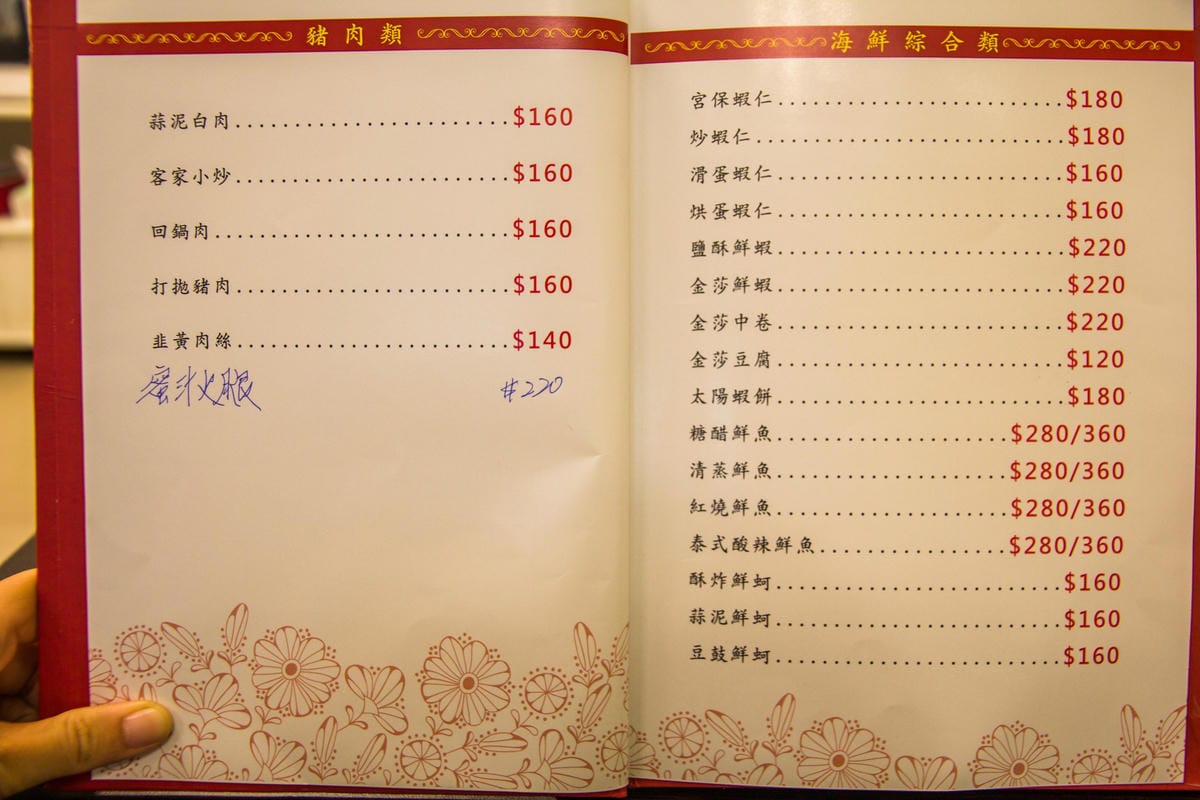 豬肉類
蒜泥白肉........................$160
客家小炒........................$160
回鍋肉..........................$160
打拋豬肉........................$160
韭黃肉絲........................$140
蜜汁火腿 $220
海鮮綜合類
宮保蝦仁........................$180
炒蝦仁..........................$180
滑蛋蝦仁........................$160
烘蛋蝦仁........................$160
鹽酥鮮蝦........................$220
金莎鮮蝦........................$220
金莎中卷........................$220
金莎豆腐........................$120
太陽蝦餅........................$180
糖醋鮮魚...................$280/360
清蒸鮮魚...................$280/360
紅燒鮮魚...................$280/360
泰式酸辣鮮魚...............$280/360
酥炸鮮蚵........................$160
蒜泥鮮蚵........................$160
豆鼓鮮蚵........................$160